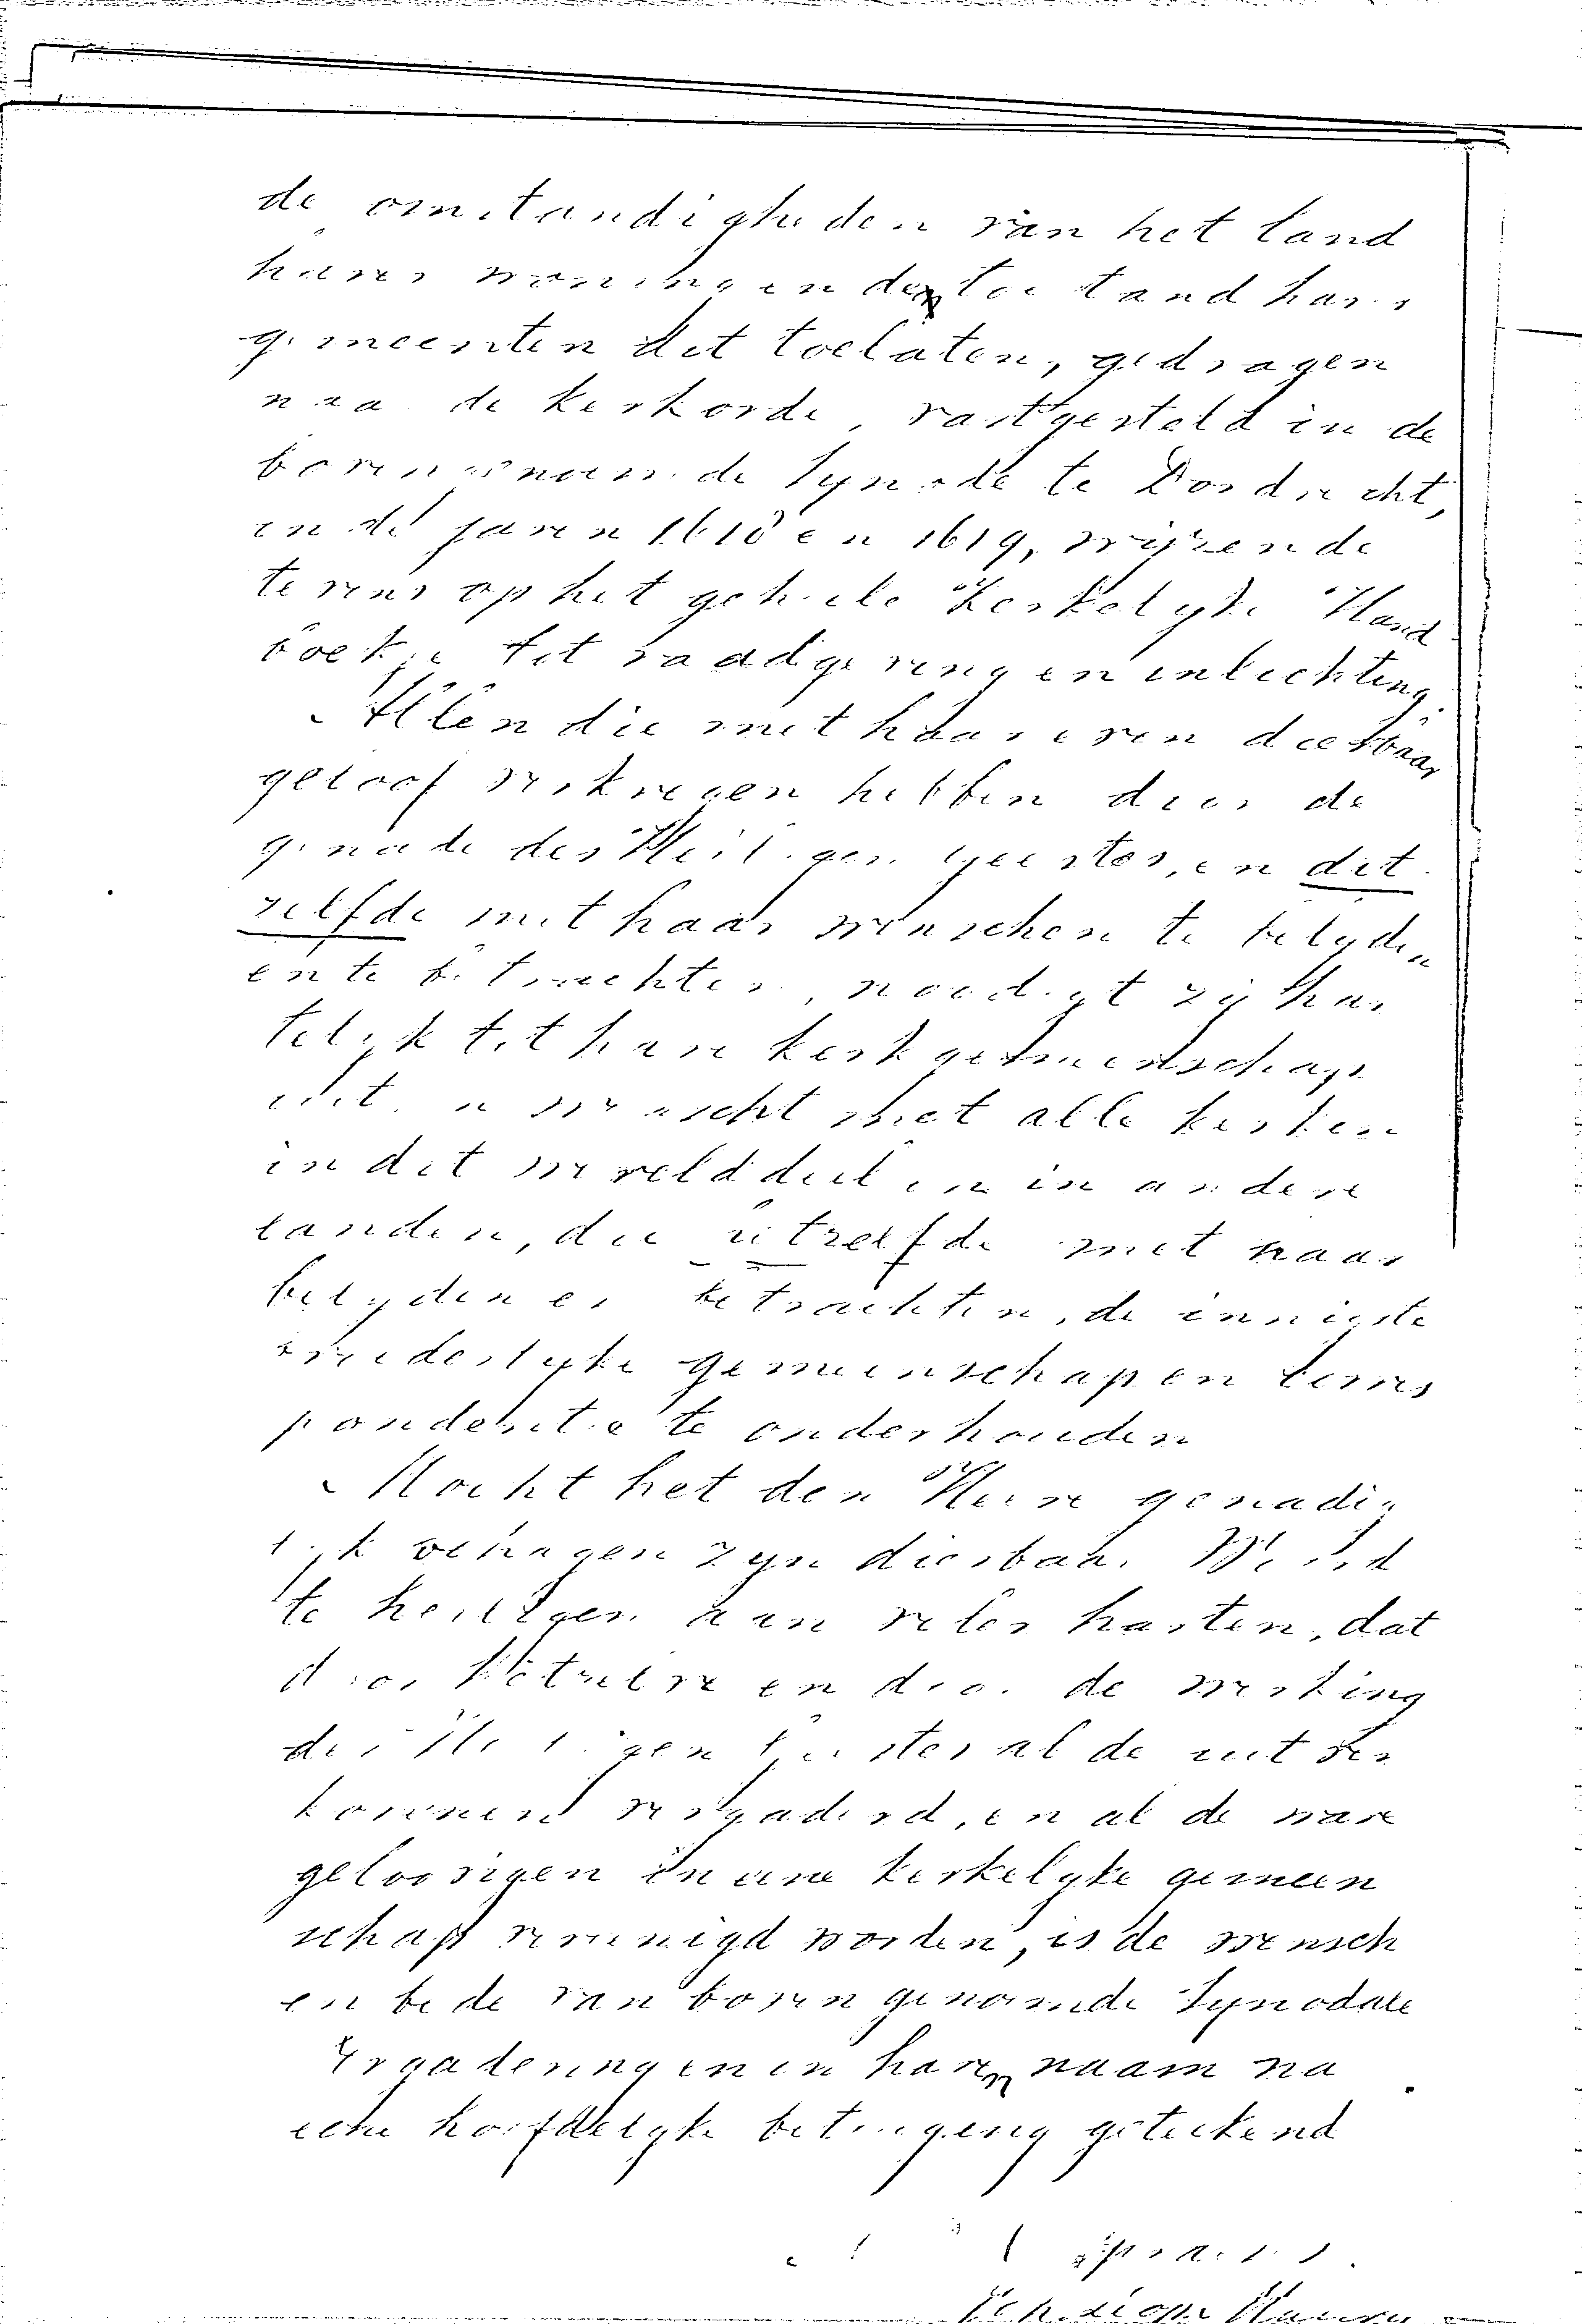 de omstandigheden van het land
harer woning en de toestand harer
gemeenten dit toelaten, gedragen
naar de kerkorde, vastgesteld in de
bovengenoemde Synode te Dordrecht,
in de jaren 1618 en 1619, wijzende
tevens op het gehele Kerkelyke Hand
boekje tot raadgeving en inlichting.
Allen die met haar even dierbaar
geloof verkregen hebben door de
genade des Heiligen Geestes, en dit
zelfde met haar wenschen te belyden
en te betrachten, noodigt zy har
telyk tot hare kerkgemeenschap
uit, en wenscht met alle kerken
in dit werelddeel en in andere
landen, die ditzelfde met haar
belyden en betrachten, de innigste
broederlyke gemeenschap en corres
pondentie te onderhouden
Mocht het den Heere genadig
lyk behagen zyn dierbaar Woord
te heiligen aan veler harten, dat
door hetzelve en door de werking
des Heiligen Geestes al de uitver
korenen vergaderd, en al de ware
gelovigen in eene kerkelyke gemeen
schap vereenigd worden, is de wensch
en bede van bovengenoemde Synodale
Vergadering en in haren naam na
eene hoofdelyke betuiging geteekend